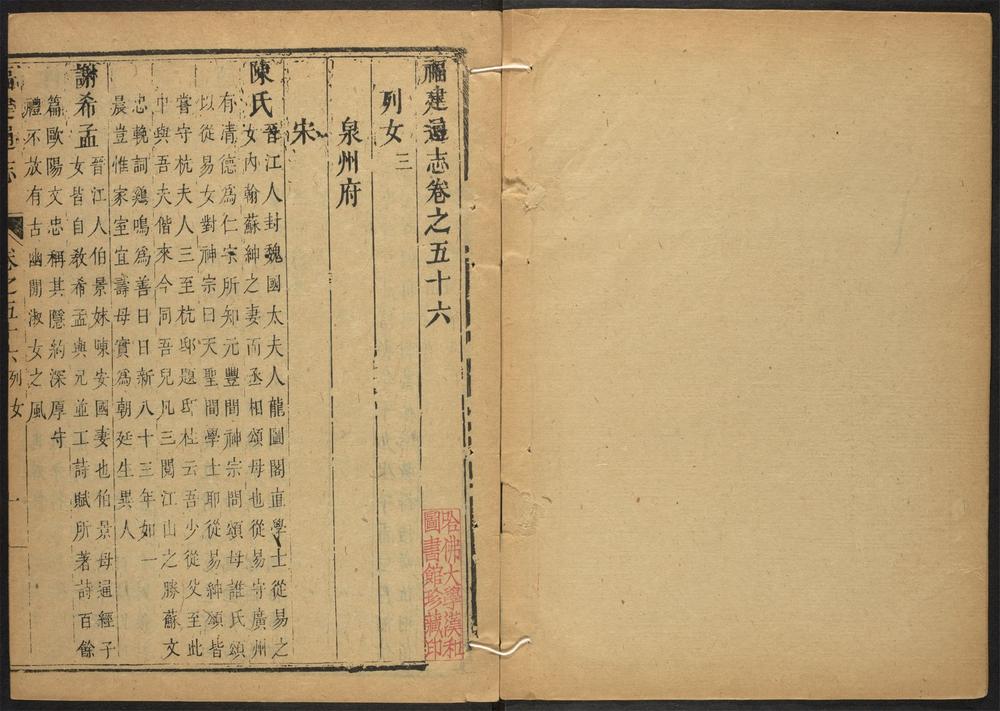 福建通志卷之五十六
列女三
泉州府
宋
陳氏晉江人封魏國太夫人龍圖閣直學士從易之
女內翰蘇紳之妻而丞相頌母也從易守廣州
有清德爲仁宗所知元豐間神宗問頌母誰氏頌
以從易女對神宗曰天聖間學士耶從易紳頌皆
嘗守杭夫人三至杭邸題邸柱云吾少從父至此
中與吾夫偕來今同吾兒凡三閱江山之勝蘇文
忠輓詞鷄鳴爲善日日新八十三年如一
晨豈惟家室宜壽母實爲朝廷生異人
謝希孟晉江人伯景妹陳安國妻也伯景母通經子
女皆自教希孟與兄並工詩賦所著詩百餘
篇歐陽文忠稱其隱約深厚守
禮不放有古幽閒淑女之風
福建通志 卷之五十六列女 一
哈佛大學漢和
圖書館珍藏印